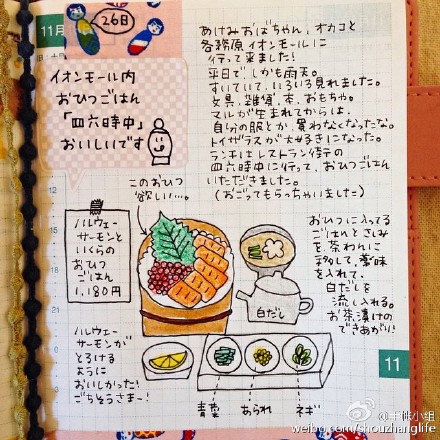 11月
26日
イオンモール内
おひつごはん
「四六時中」
おいしいです
あけみおばちゃん、オカコと
各務原イオンモールに
行って来ました!
平日で、しかも雨天。
すいていて、いろいろ見れました。
文具、雑貨、本、おもちゃ。
マルが生まれてからは、
自分の服とか、買わなくなったな。
トイザラスが大好きになった。
ランチはレストラン街の
四六時中に行って、おひつごはん
いただきました。
(おごってもらっちゃいました)
このおひつ
欲しい…。
ノルウェー
サーモンと
いくらの
おひつ
ごはん
1,180円
おひつに入ってる
ごはんとさしみ
を、茶わんに
移して、薬味
を入れて、
白だしを
流し入れる。
お茶漬けの
できあがり!
白だし
ノルウェー
サーモンが
とろける
ように
おいしかった!
ごちそうさま~!
青葉
あられ
ネギ
11
weibo.com/shouzhanglife